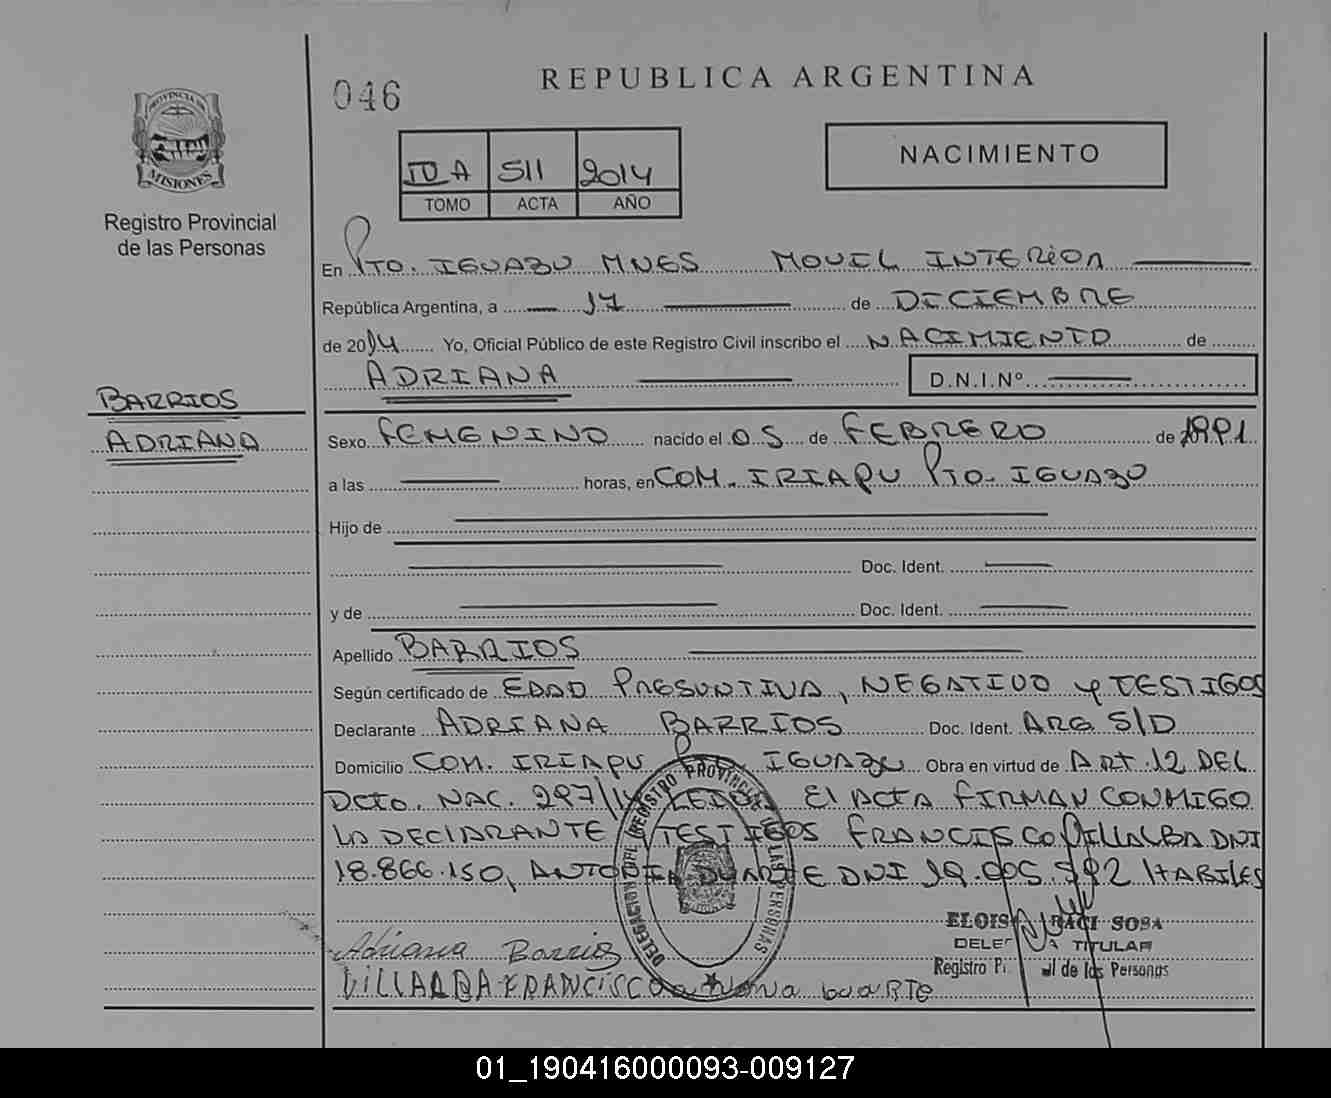 046
REPUBLICA ARGENTINA
NACIMIENTO
PROVINCIA DE
MISIONES
Registro Provincial
de las Personas
IV A 511 2014
TOMO ACTA AÑO
En PTO. IGUAZU MNES MOVIL INTERIOR
República Argentina, a 17 de DICIEMBRE
de 2014 Yo, Oficial Público de este Registro Civil inscribo el NACIMIENTO de
ADRIANA D.N.I.Nº
BARRIOS
ADRIANA
Sexo FEMENINO nacido el 05 de FEBRERO de 1991
a las horas, en COM. IRIAPU PTO. IGUAZU
Hijo de
Doc. Ident.
y de Doc. Ident.
Apellido BARRIOS
Según certificado de EDAD PRESUNTIVA, NEGATIVO y TESTIGOS
Declarante ADRIANA BARRIOS Doc. Ident. ARG S/D
Domicilio COM. IRIAPU IGUAZU Obra en virtud de ART. 12 DEL
DCTO. NAC. 297/14 LEIDA El ACTA FIRMAN CONMIGO
LA DECLARANTE TESTIGOS FRANCISCO VILLALBA DNI
18.866.150, ANTONIA DUARTE DNI 19.005.592 HABILES
DELEGACION DEL REGISTRO PROVINCIAL DE LAS PERSONAS
Adriana Barrios
VILLALBA FRANCISCO DUARTE
SOSA
TITULAR
Registro de las Personas
01_190416000093-009127